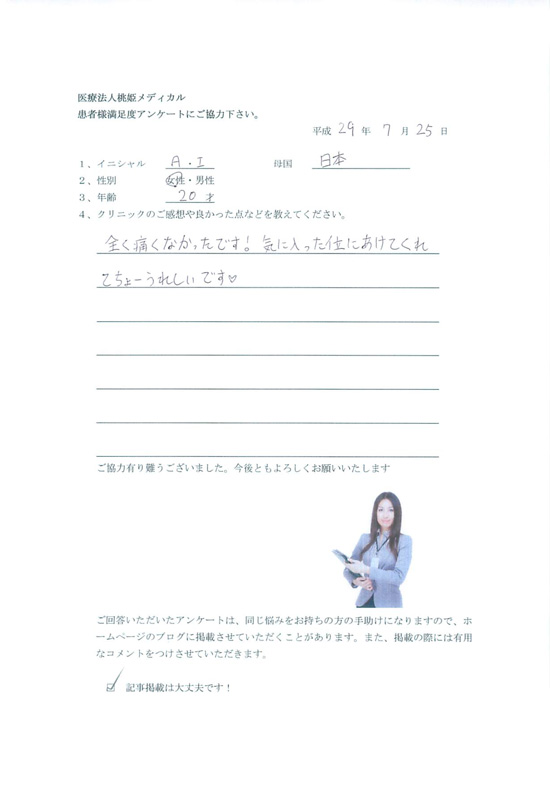 医療法人桃姫メディカル
患者様満足度アンケートにご協力下さい。
平成 29 年 7 月 25 日
1、イニシャル A・I 母国 日本
2、性別 女性・男性
3、年齢 20 才
4、クリニックのご感想や良かった点などを教えてください。
全く痛くなかったです！気に入った位にあけてくれ
てちょーうれしいです♡
ご協力有り難うございました。今後ともよろしくお願いいたします
ご回答いただいたアンケートは、同じ悩みをお持ちの方の手助けになりますので、ホ
ームページのブログに掲載させていただくことがあります。また、掲載の際には有用
なコメントをつけさせていただきます。
☑ 記事掲載は大丈夫です！